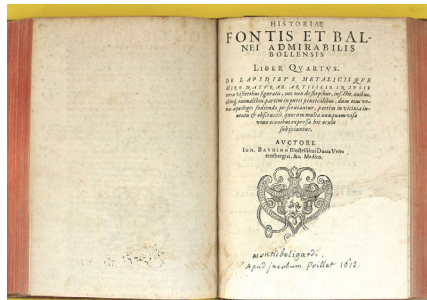 HISTORIAE
FONTIS ET BAL-
NEI ADMIRABILIS
BOLLENSIS
LIBER QVARTVS.
DE LAPIDIBVS METALICISQVE
MIRO NATVRAE ARTIFICIO IN IPSIS
terrae visceribus figuratis, nec non de stirpibus, insectis, avibus,
aliisq́ animalibus partim in putei penetralibus, dum eius ve-
nae aquileges fodiendo perscrutantur, partim in vicinia in-
ventis & observatis, quorum multa nunquam visa
venis iconibus expressa hic oculis
subijciuntur.
AVCTORE
IOH. BAVHINO Illustrissimi Ducis Wirtembergici, &c. Medico.
montisbeligardi,
Apud jacobum foillet 1612.